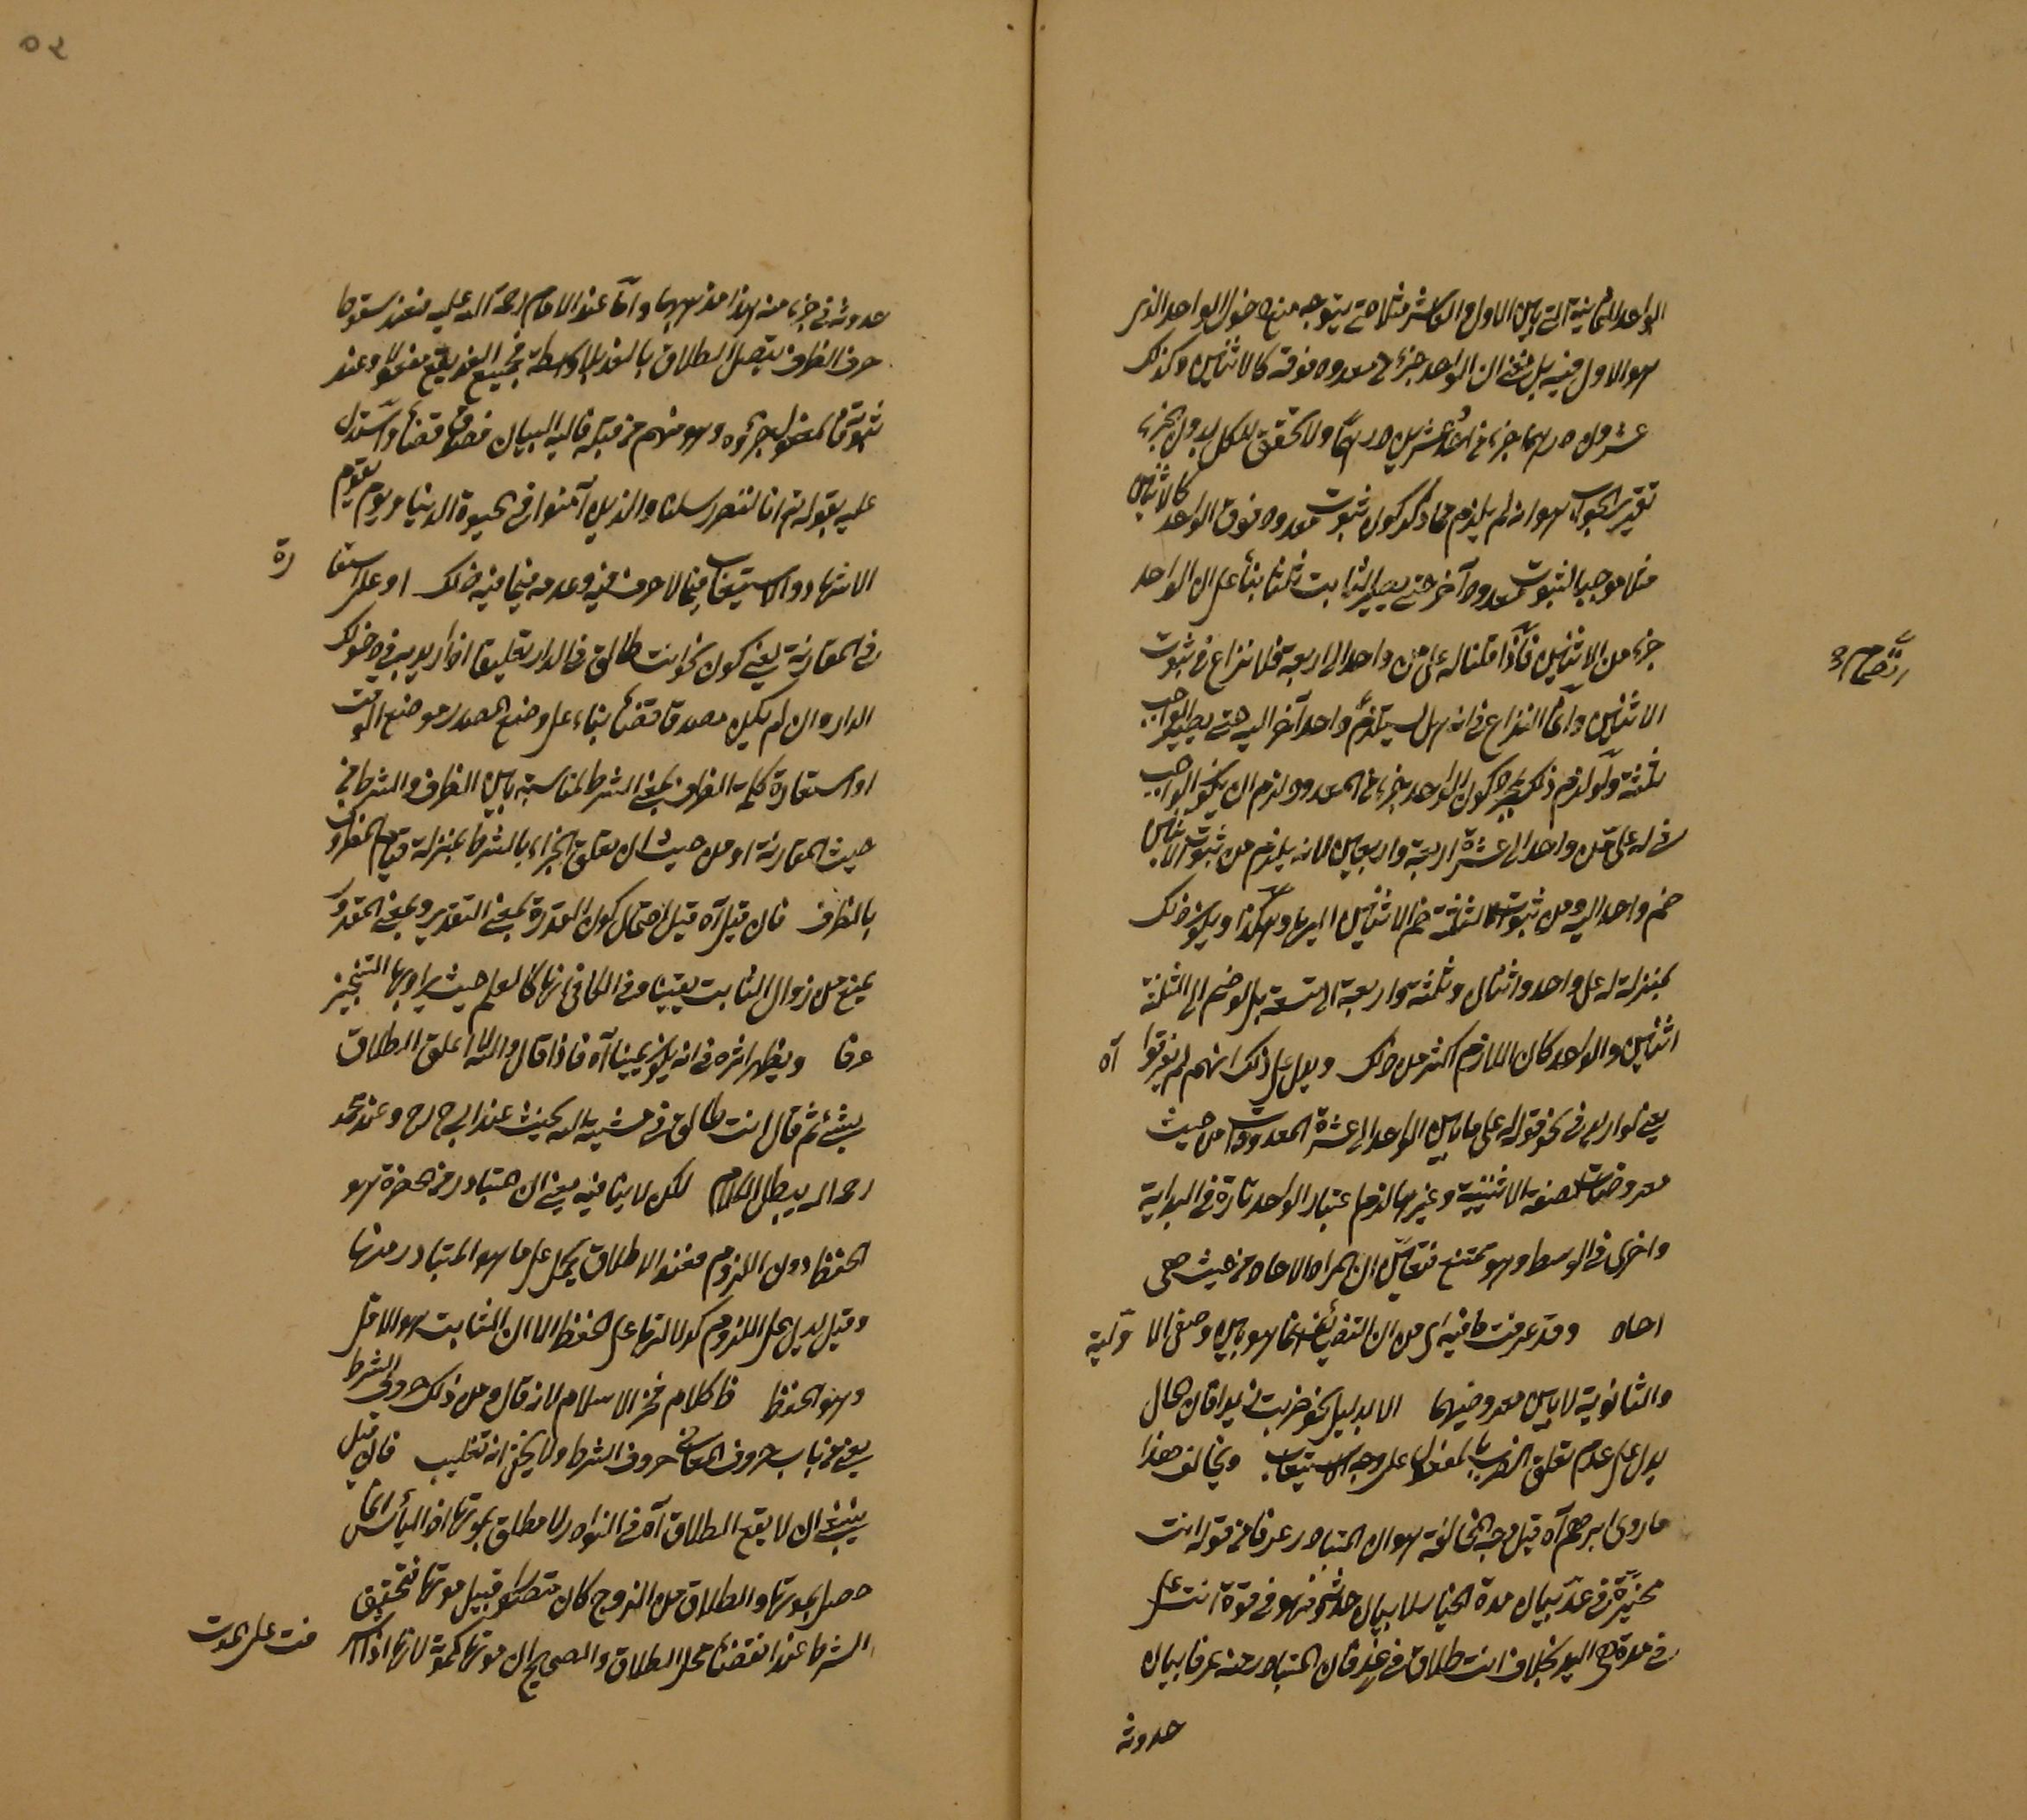 الواحد الثانية التي بين الاول والعاشر مثلا حتى يتوجه منع دخول الواحد الذى
هو الاول فيه بل معنى ان الواحد جزء من معدود فوقه كالاثنين وكذلك
عشرون درهما جزء من احد وعشرين درهما ولا تحقق للكل بدون الجزء
تقرير الجواب هو انه لم يلزم مما ذكر كون ثبوت معدود فوق الواحد كالاثنين
مثلا موجبا لثبوت معدود آخر حتى يصير الثابت ثلثا بناء على ان الواحد
جزء من الاثنين فاذا قلنا له على من واحد الى اربعة فلا نزاع فى ثبوت
الاثنين وانما النزاع فى انه هل يستلزم واحدا آخر اليه حتى يصير الواجب
ثلثة ولو لزم ذلك بمجرد كون الواحد جزء من المعدود لزم ان يكون الواجب
فى له على من واحد الى عشرة اربعة واربعين لانه يلزم من ثبوت الاثنين
ضم واحد اليه ومن ثبوت الثلثة ضم الاثنين اليها وهكذا ويكون ذلك
بمنزلة له على واحد واثنان وثلثة واربعة الى تسعة بل لو ضم الى الثلثة
اثنين والواحد كان اللازم اكثر من ذلك ويدل على ذلك انهم لم يفرقوا آه
يعنى لو اريد فى نحو قوله على ما بين الواحد الى عشرة المعدودات من حيث
معروضات لصفة الاثنينية وغيرها لزم اعتبار الواحد تارة فى البداية
واخرى فى الوسط وهو ممتنع فتعين ان المراد الاحاد من حيث هى
احاد وقد عرفت ما فيه اى من ان التضايف انما هو بين وصفى الاولية
والثانوية لا بين معروضيهما الا بدليل نحو ضربت زيدا فان الحال
يدل على عدم تعلق الضرب بالمفعول على وجه الاستيعاب ويخالف هذا
ما روى ابراهيم آه قيل وجه المخالفة هو ان المتبادر عرفا من قوله انت
مخيرة فى غد بيان مدة الخيار لا بيان حدوثه فهو فى قوة انت على
فى مدة هى اليد بخلاف انت طلاق فى غد فان المتبادر منه عرفا بيان
حدوثه
حدوثه فى جزء منه هذا مذهبهما واما عند الامام رحمة الله عليه فعند سقوط
حرف الظرف يتصل الطلاق بالغد بلا واسطة فجميع الغد يقع مفعولا وعند
ثبوته فالمفعول جزؤه وهو مبهم من قبله فاليه البيان فصدق قضاء واستدل
عليه بقوله تع انا لننصر رسلنا والذين آمنوا فى الحيوة الدنيا ويوم يقوم
الاشهاد والاستيعاب فيما لا حرف فيه وعدمه فيما فيه ذلك او على استعارة
فى المقارنة يعنى كون نحو انت طالق فى الدار تعليقا اذا اريد به فى دخولك
الدار وان لم يكن مصدقا قضاء بناء على وضع المصدر موضع الوقت
او استعارة كلمة الظرف بمعنى الشرط لمناسبة بين الظرف والشرط من
حيث المقارنة او من حيث ان تعلق الجزاء بالشرط بمنزلة قيام المظروف
بالظرف فان قيل آه قيل احتمال كون القدرة بمعنى التقدير وبمعنى المقدور
يمنع من زوال الثابت يقينا وفى الكافى انها كالعلم حيث يراد بها التنجيز
عرفا ويظهر اثره فى انه يكون يمينا آه فاذا قال والله لا اعلق الطلاق
بشئ ثم قال انت طالق فى مشية الله يحنث عند ابى ح رح وعند محمد
رحمه الله يبطل الكلام لكن لا ينافيه يعنى ان المتبادر من الحضرة هو
الحفظ دون اللزوم فعند الاطلاق يحمل على ما هو المتبادر منها
وقيل يدل على اللزوم كدلالتها على الحفظ الا ان الثابت هو الاقل
وهو الحفظ ظ كلام فخر الاسلام لانه قال ومن ذلك حروف الشرط
يعنى من باب حروف المعانى حروف الشرط ولا يخفى انه تغليب فان قيل
ينبغى ان لا يقع الطلاق آه فى النوادر لا مطلق بموتها اذ اليأس انما
حصل بموتها والطلاق من الزوج كان متصورا قبيل موتها فتحقق
الشرط عند انقضاء محل الطلاق والصحيح ان موتها كموته لانها اذا اشرفت على الموت